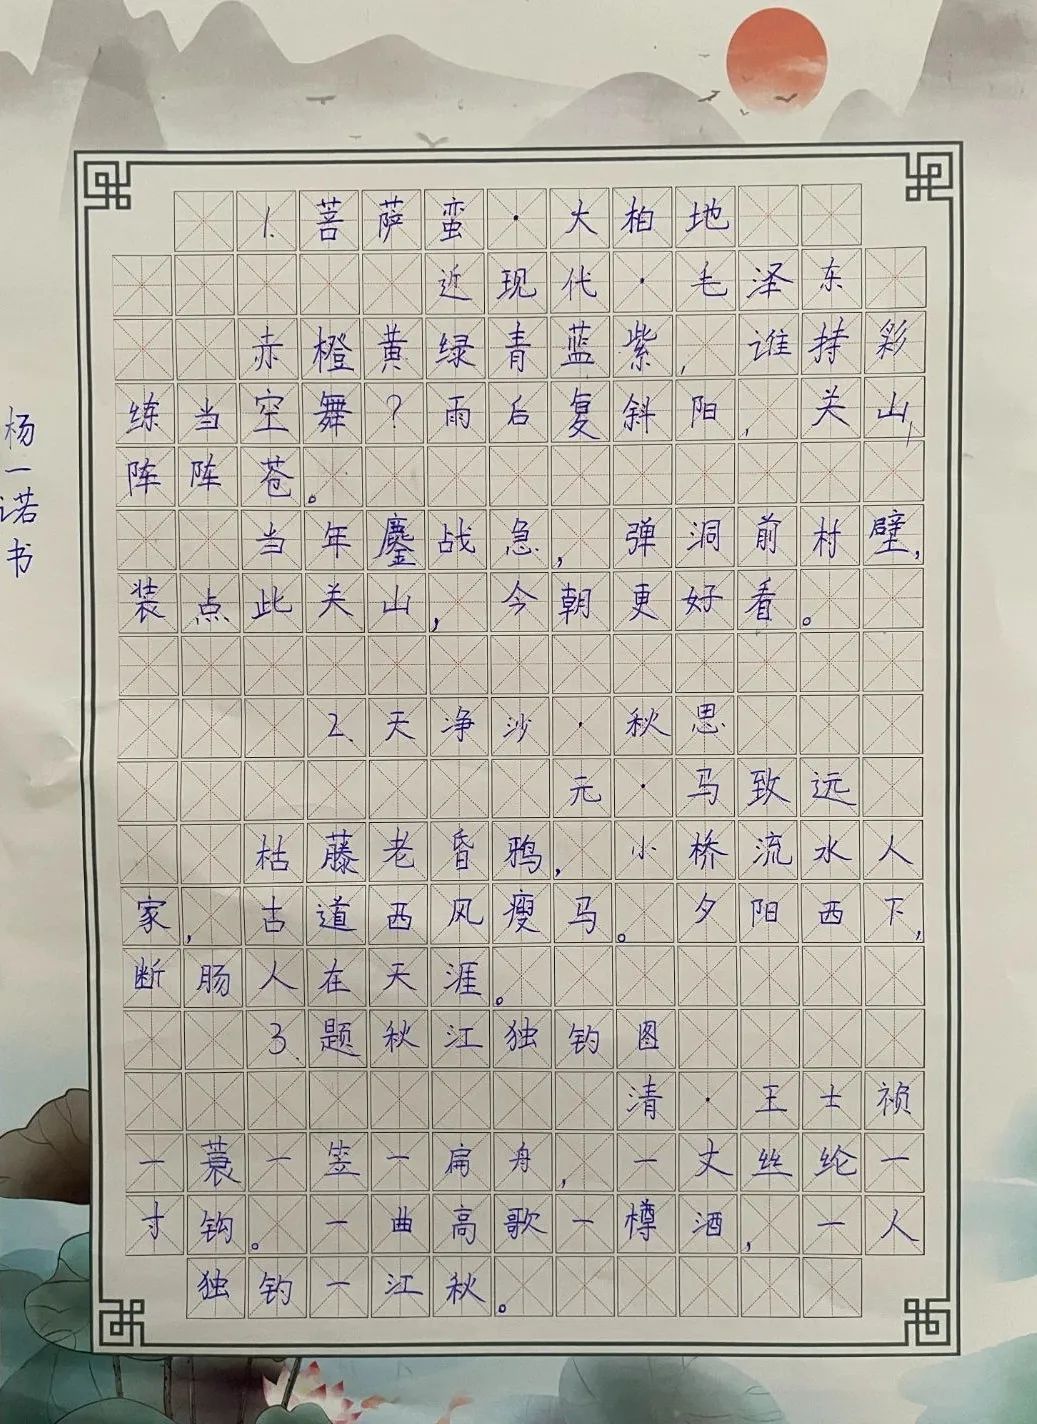 1.菩萨蛮·大柏地
近现代·毛泽东
赤橙黄绿青蓝紫,谁持彩
练当空舞?雨后复斜阳,关山
阵阵苍。
当年鏖战急,弹洞前村壁,
装点此关山,今朝更好看。
2、天净沙·秋思
元·马致远
枯藤老昏鸦,小桥流水人
家,古道西风瘦马。夕阳西下,
断肠人在天涯。
3、题秋江独钓图
清·王士祯
一蓑一笠一扁舟,一丈丝纶一
寸钩。一曲高歌一樽酒,一人
独钓一江秋。
杨一诺书